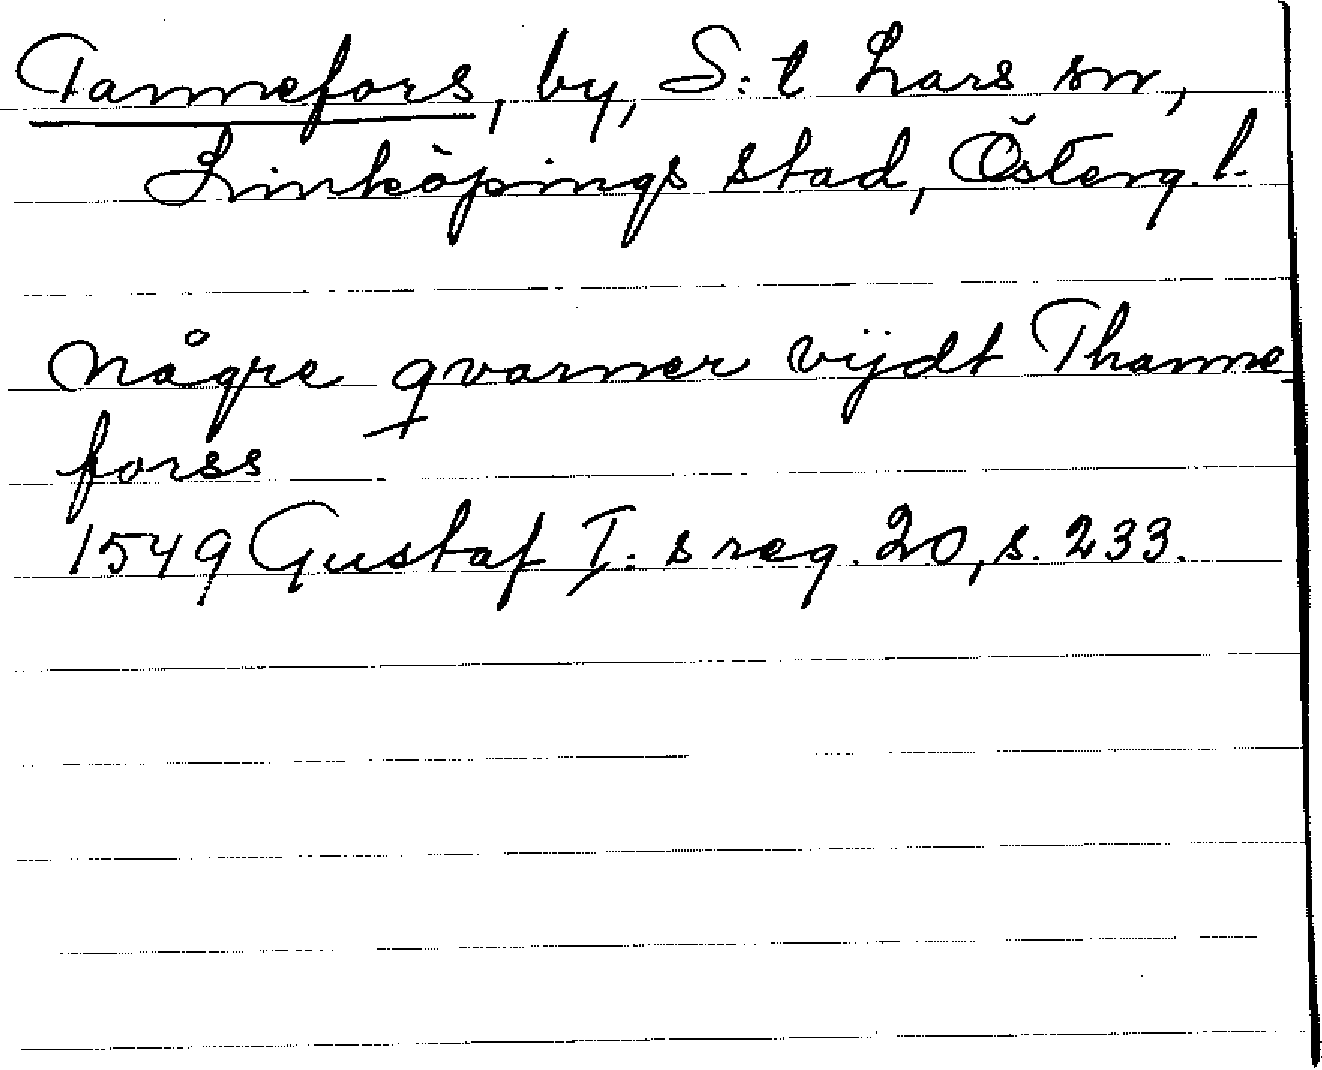 Tannefors, by, S:t Lars sn,
Linköpings stad, Österg. l.
någre qvarner vijdt Thanne
forss
1549 Gustaf I:s reg. 20, s. 233.